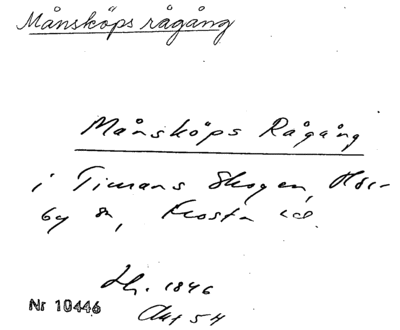 Månsköps rågång
Månsköps Rågång
i Timans Skogen, Hör-
by sn, Frosta hd.
Lh. 1846
Nr 10446
Akt 54